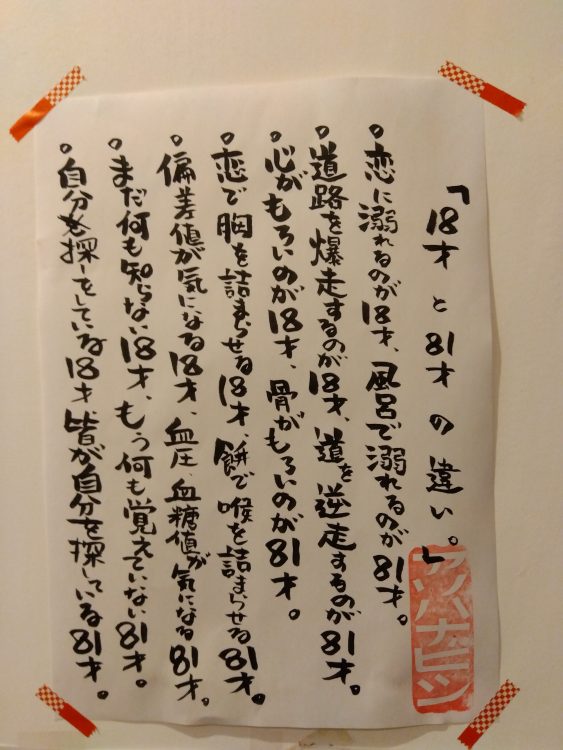 「18才と81才の違い。」
。恋に溺れるのが18才、風呂で溺れるのが81才。
。道路を爆走するのが18才、道を逆走するのが81才。
。心がもろいのが18才、骨がもろいのが81才。
。恋で胸を詰まらせる18才、餅で喉を詰まらせる81才。
。偏差値が気になる18才、血圧、血糖値が気になる81才。
。まだ何も知らない18才、もう何も覚えていない81才。
。自分を探しをしている18才、皆が自分を探している81才。
アソハナビシ